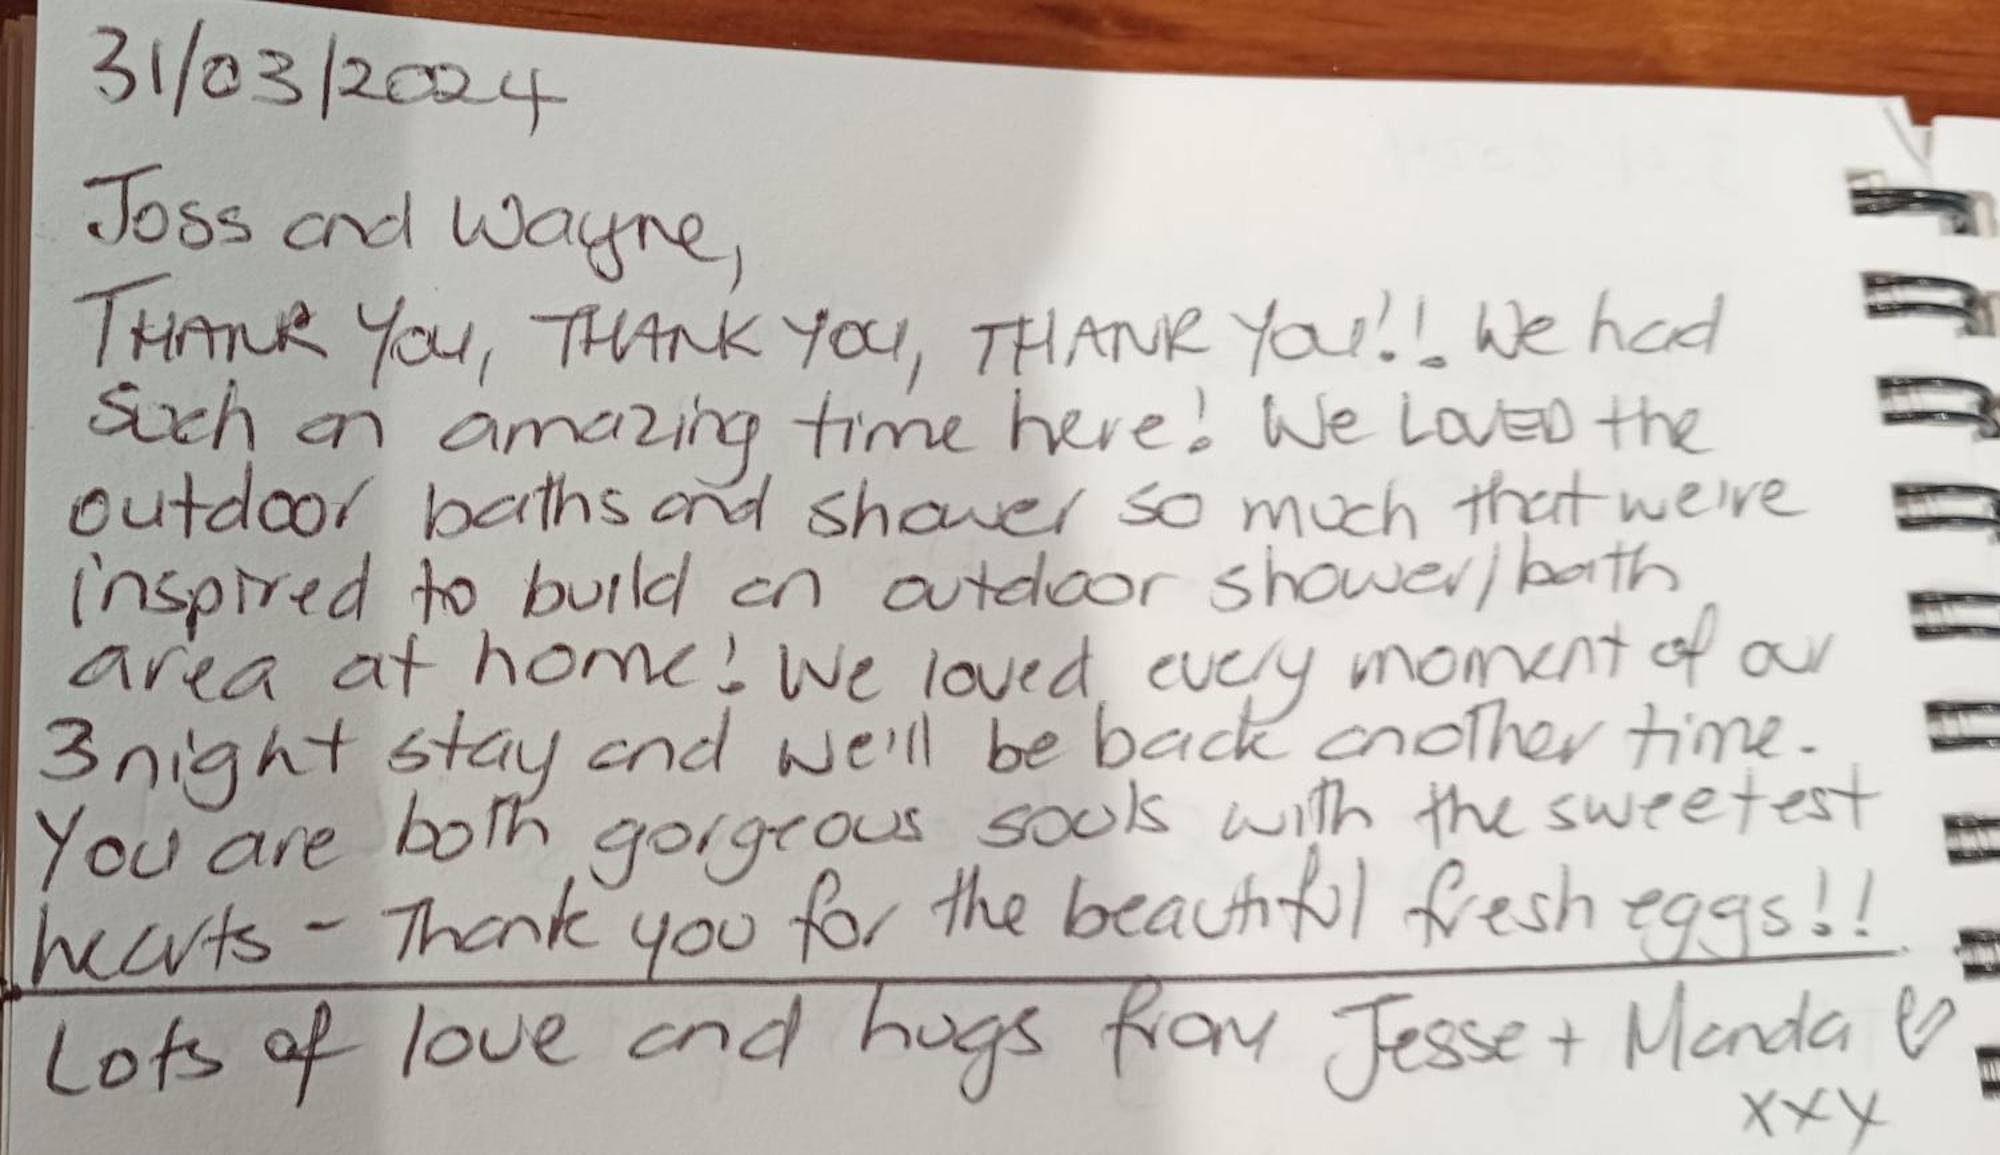 31/03/2024
Joss and Wayne,
THANK YOU, THANK YOU, THANK YOU!!. We had
such an amazing time here! We LOVED the
outdoor baths and shower so much that we're
inspired to build an outdoor shower/bath
area at home! We loved every moment of our
3 night stay and we'll be back another time.
You are both gorgeous souls with the sweetest
hearts - Thank you for the beautiful fresh eggs!!
Lots of love and hugs from Jesse + Manda ♡
xxx